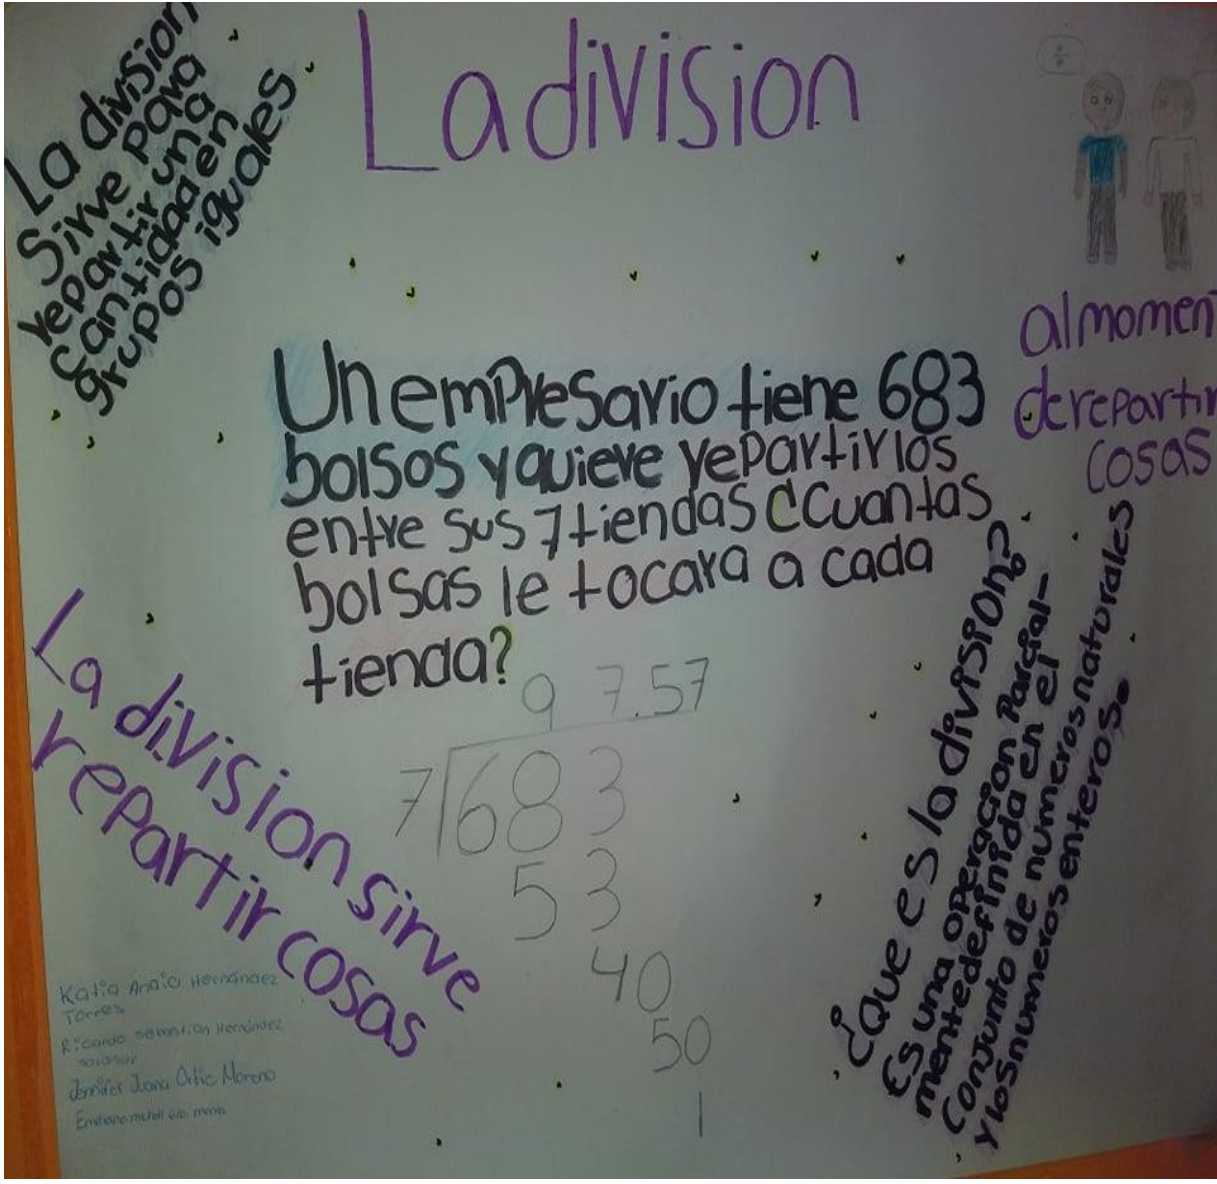 La division
La division
sirve para
repartir una
cantidad en
grupos iguales
al momen
de repartir
cosas
Un empresario tiene 683
bolsos y quiere repartirlos
entre sus 7 tiendas ¿Cuantas
bolsas le tocara a cada
tienda?
9 7.57
7 683
53
40
50
1
La division sirve
repartir cosas
¿Que es la division?
Es una operacion Parcial-
mente definida en el
conjunto de numeros naturales
y los numeros enteros.
Katia Anaid Hernández
Torres
Ricardo Sebastian Hernández
Jennifer Joana Ortiz Moreno
Emiliano